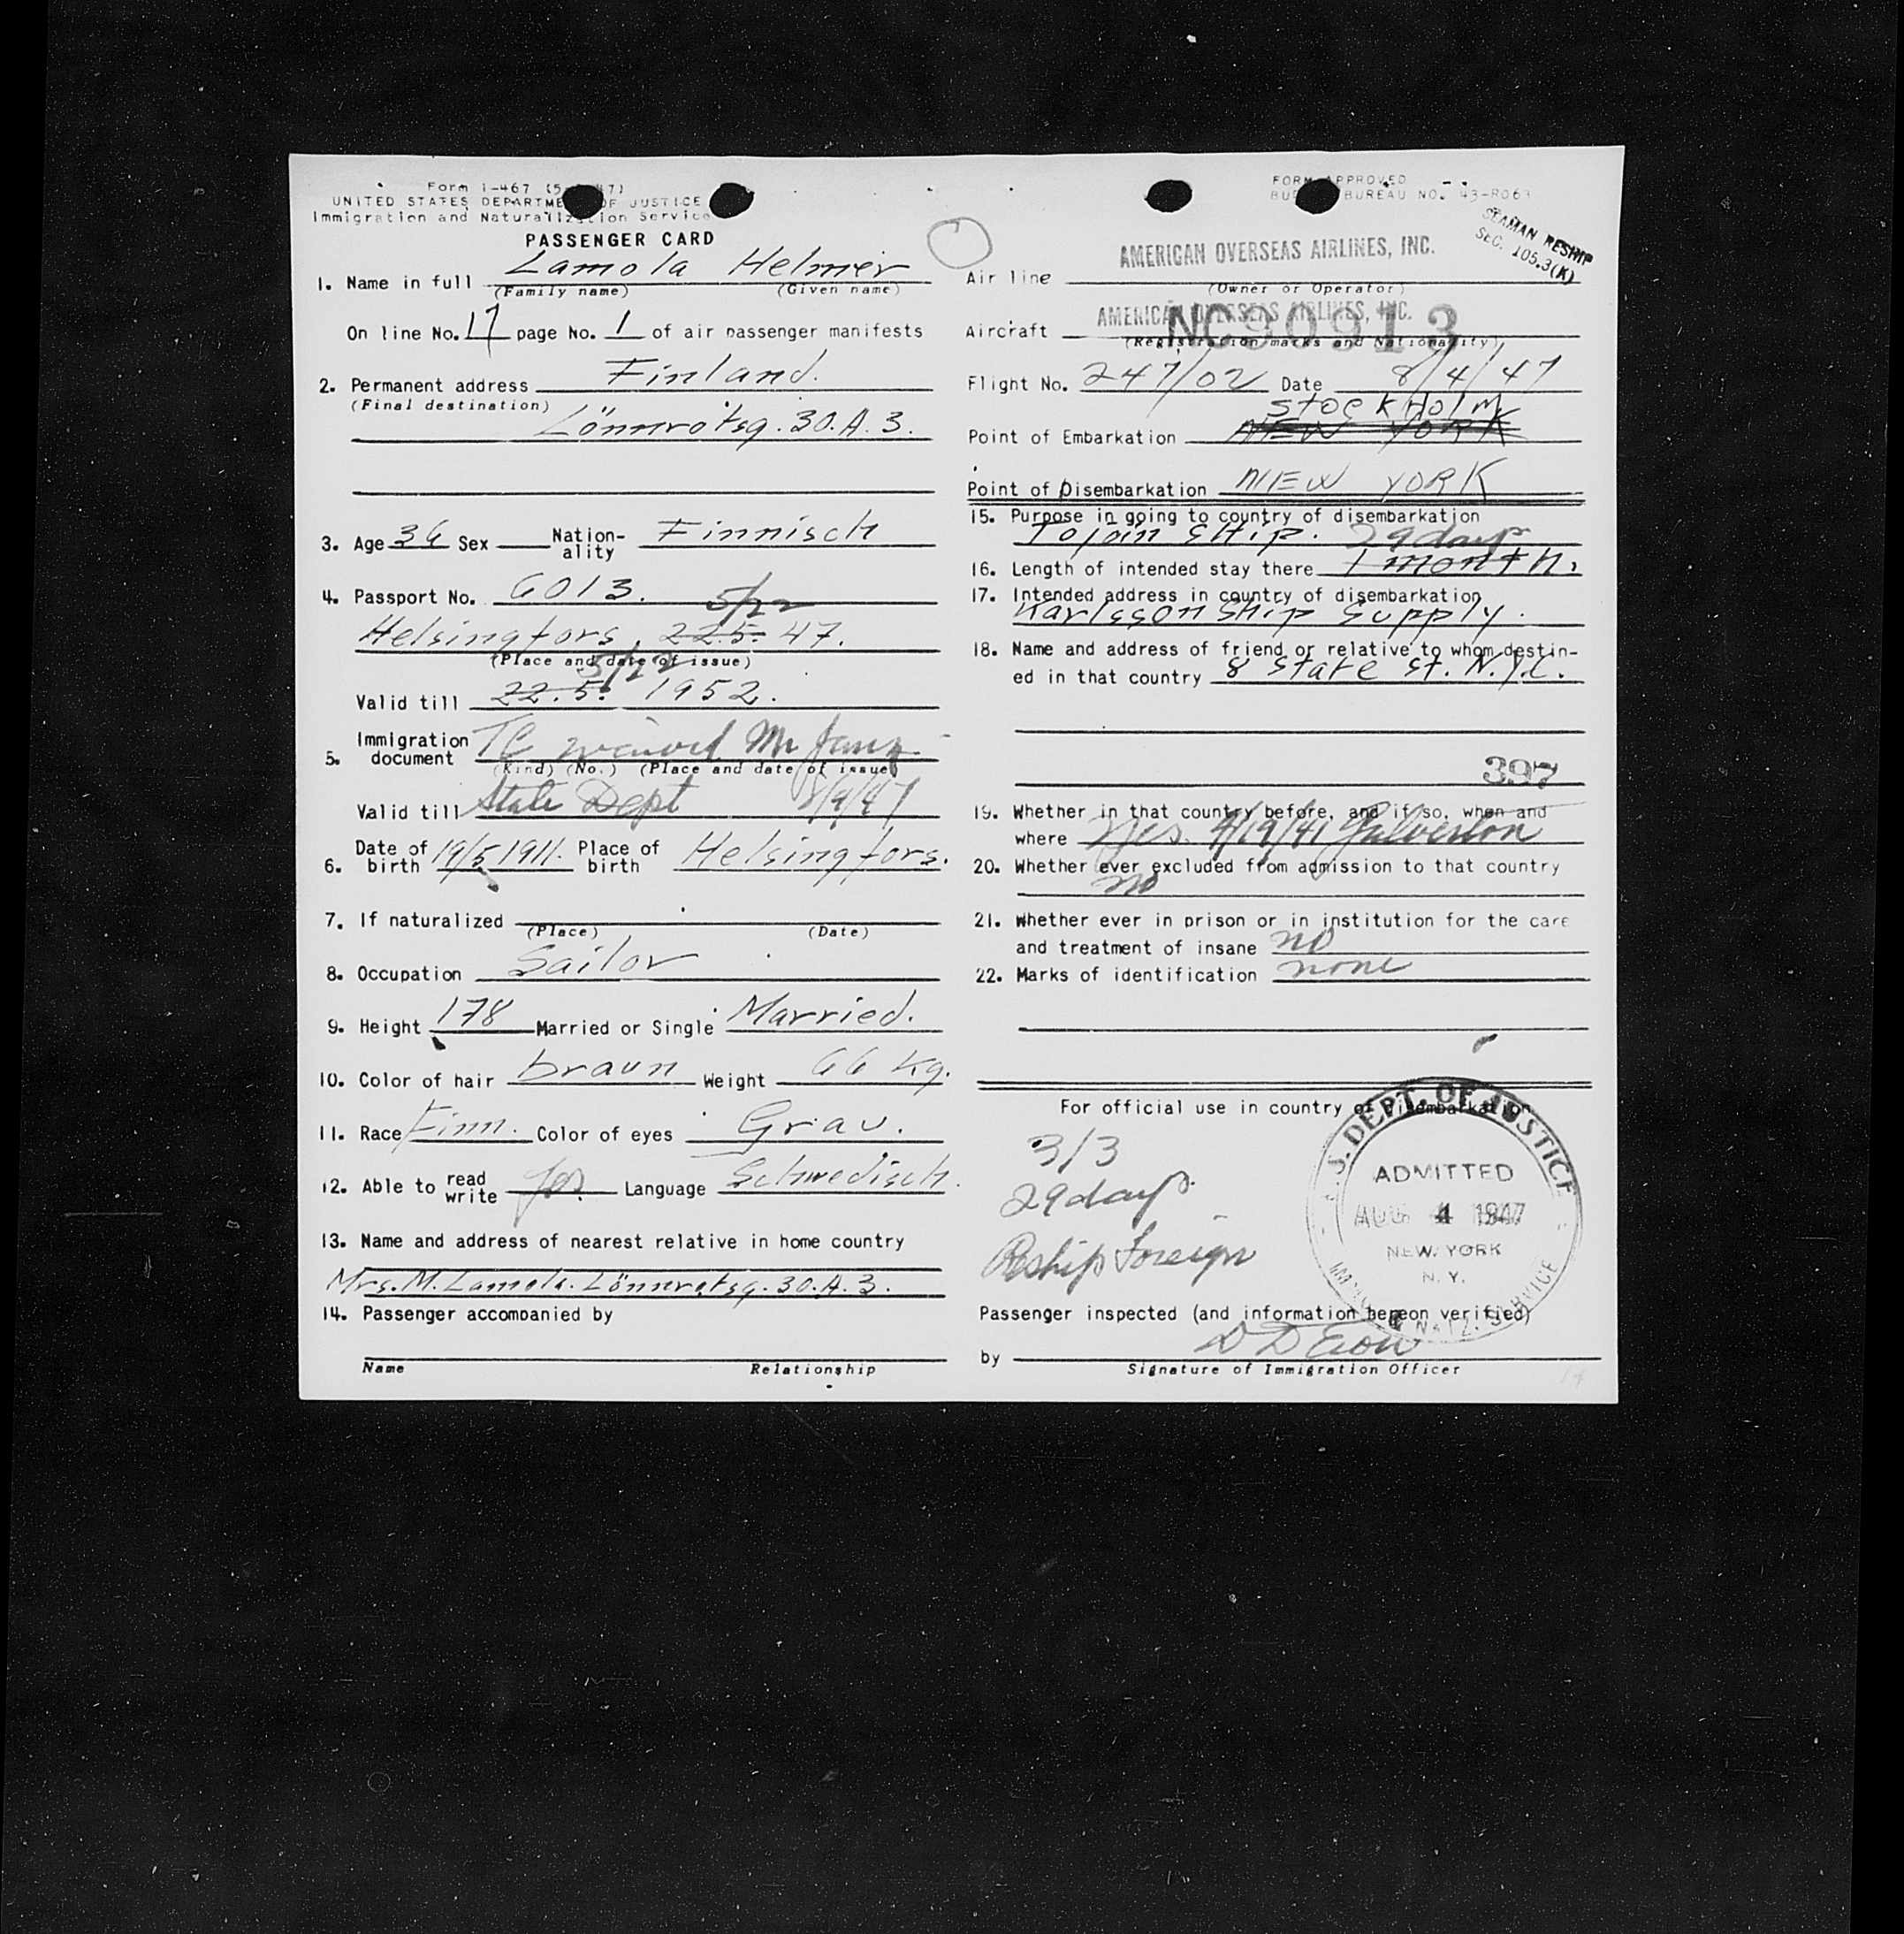 Form I-467 (5 47)
UNITED STATES DEPARTMENT OF JUSTICE
Immigration and Naturalization Service
PASSENGER CARD
1. Name in full Lamola Helmer
(Family name) (Given name)
On line No. 17 page No. 1 of air passenger manifests
2. Permanent address Finland.
(Final destination)
Lönnrotsg. 30. A. 3.
3. Age 36 Sex Nationality Finnisch
4. Passport No. 6013.
5/22
Helsingfors. 22.5. 47.
(Place and date of issue)
5/22
Valid till 22.5. 1952.
5. Immigration document TC waived Mr
(Kind) (No.) (Place and date of issue)
Valid till State Dept 8/9/47
6. Date of birth 19/5 1911. Place of birth Helsingfors.
7. If naturalized
(Place) (Date)
8. Occupation Sailor
9. Height 178 Married or Single Married.
10. Color of hair braun Weight 66 Kg.
11. Race Finn. Color of eyes Grau.
12. Able to read write yes Language Schwedisch.
13. Name and address of nearest relative in home country
Mrs. M. Lamola. Lönnrotsg. 30. A. 3.
14. Passenger accompanied by
Name Relationship
FORM APPROVED
BUREAU NO. 43-R063
SEAMAN RESHIP
SEC. 105.3(K)
AMERICAN OVERSEAS AIRLINES, INC.
Air line
(Owner or Operator)
AMERICAN OVERSEAS AIRLINES, INC.
Aircraft NC90913
(Registration marks and Nationality)
Flight No. 247/02 Date 8/4/47
STOCKHOLM
Point of Embarkation NEW YORK
Point of Disembarkation NEW YORK
15. Purpose in going to country of disembarkation
To join Ship. 29 days
16. Length of intended stay there 1 month.
17. Intended address in country of disembarkation
Karlsson Ship Supply.
18. Name and address of friend or relative to whom destin-
ed in that country 8 State St. N.Y.C.
397
19. Whether in that country before, and if so, when and
where Yes. 4/19/41 Galveston
20. Whether ever excluded from admission to that country
no
21. Whether ever in prison or in institution for the care
and treatment of insane no
22. Marks of identification none
For official use in country of disembarkation
3/3
29 days
Reship Foreign
U.S. DEPT. OF JUSTICE
ADMITTED
AUG 4 1947
NEW YORK
N. Y.
IMMIG. & NATZ. SERVICE
Passenger inspected (and information hereon verified)
by
Signature of Immigration Officer